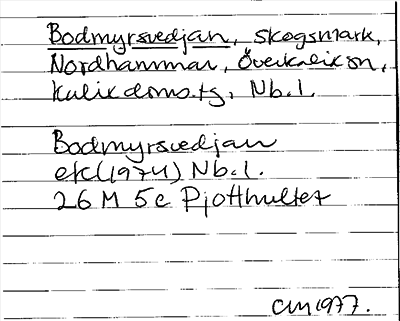 Bodmyrsvedjan, skogsmark,
Nordhammar, Överkalix sn,
Kalix doms.tg, Nb.l.
Bodmyrsvedjan
ek(1974) Nb.l.
26 M 5c Pjotthultet
CM 1977.